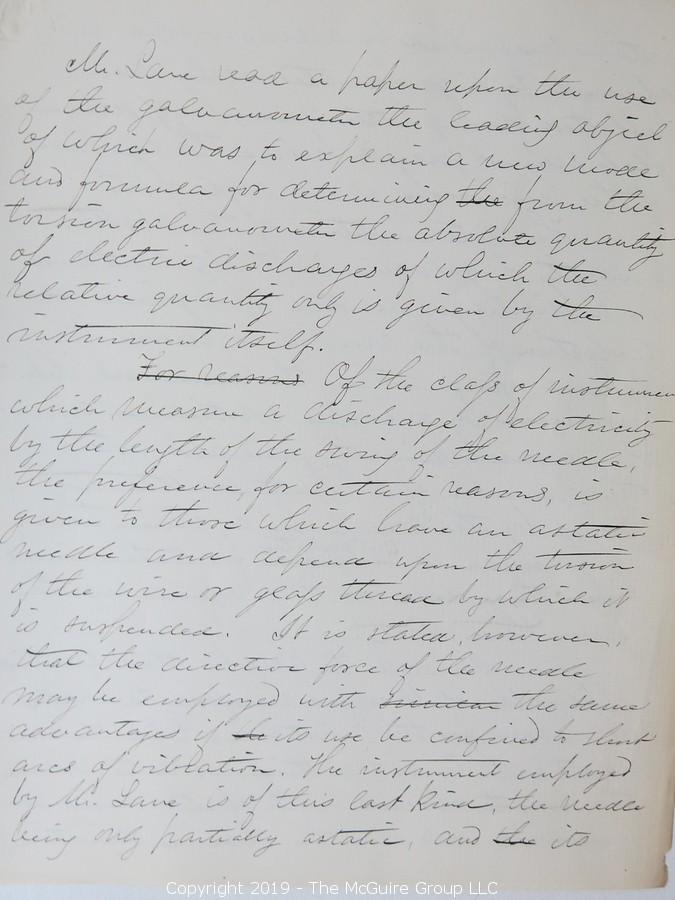 Mr. Lane read a paper upon the use
of the galvanometer the leading object
of which was to explain a new mode
and formula for determining the from the
torsion galvanometer the absolute quantity
of electric discharges of which the
relative quantity only is given by the
instrument itself.
For reasons Of the class of instrumen
which measure a discharge of electricity
by the length of the swing of the needle,
the preference, for certain reasons, is
given to those which have an astatic
needle and depend upon the torsion
of the wire or glass thread by which it
is suspended. It is stated, however,
that the directive force of the needle
may be employed with the same
advantages if its use be confined to short
arcs of vibration. The instrument employed
by Mr. Lane is of this last kind, the needle
being only partially astatic, and the its
Copyright 2019 - The McGuire Group LLC